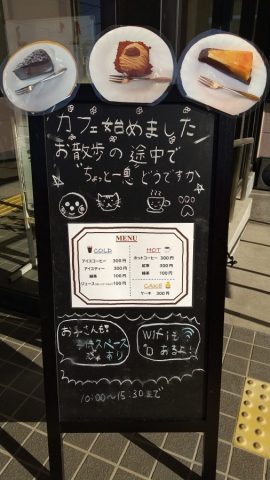 カフェ始めました
お散歩の途中で
ちょっと一息どうですか
MENU
COLD
アイスコーヒー 300円
アイスティー 300円
緑茶 100円
HOT
ホットコーヒー 300円
紅茶 300円
緑茶 100円
CAKE
ケーキ 300円
お子さんも
スペース
あり
Wifiも
あるよ!
10:00~15:30まで